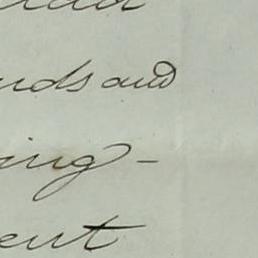 nds and
ing -
ent